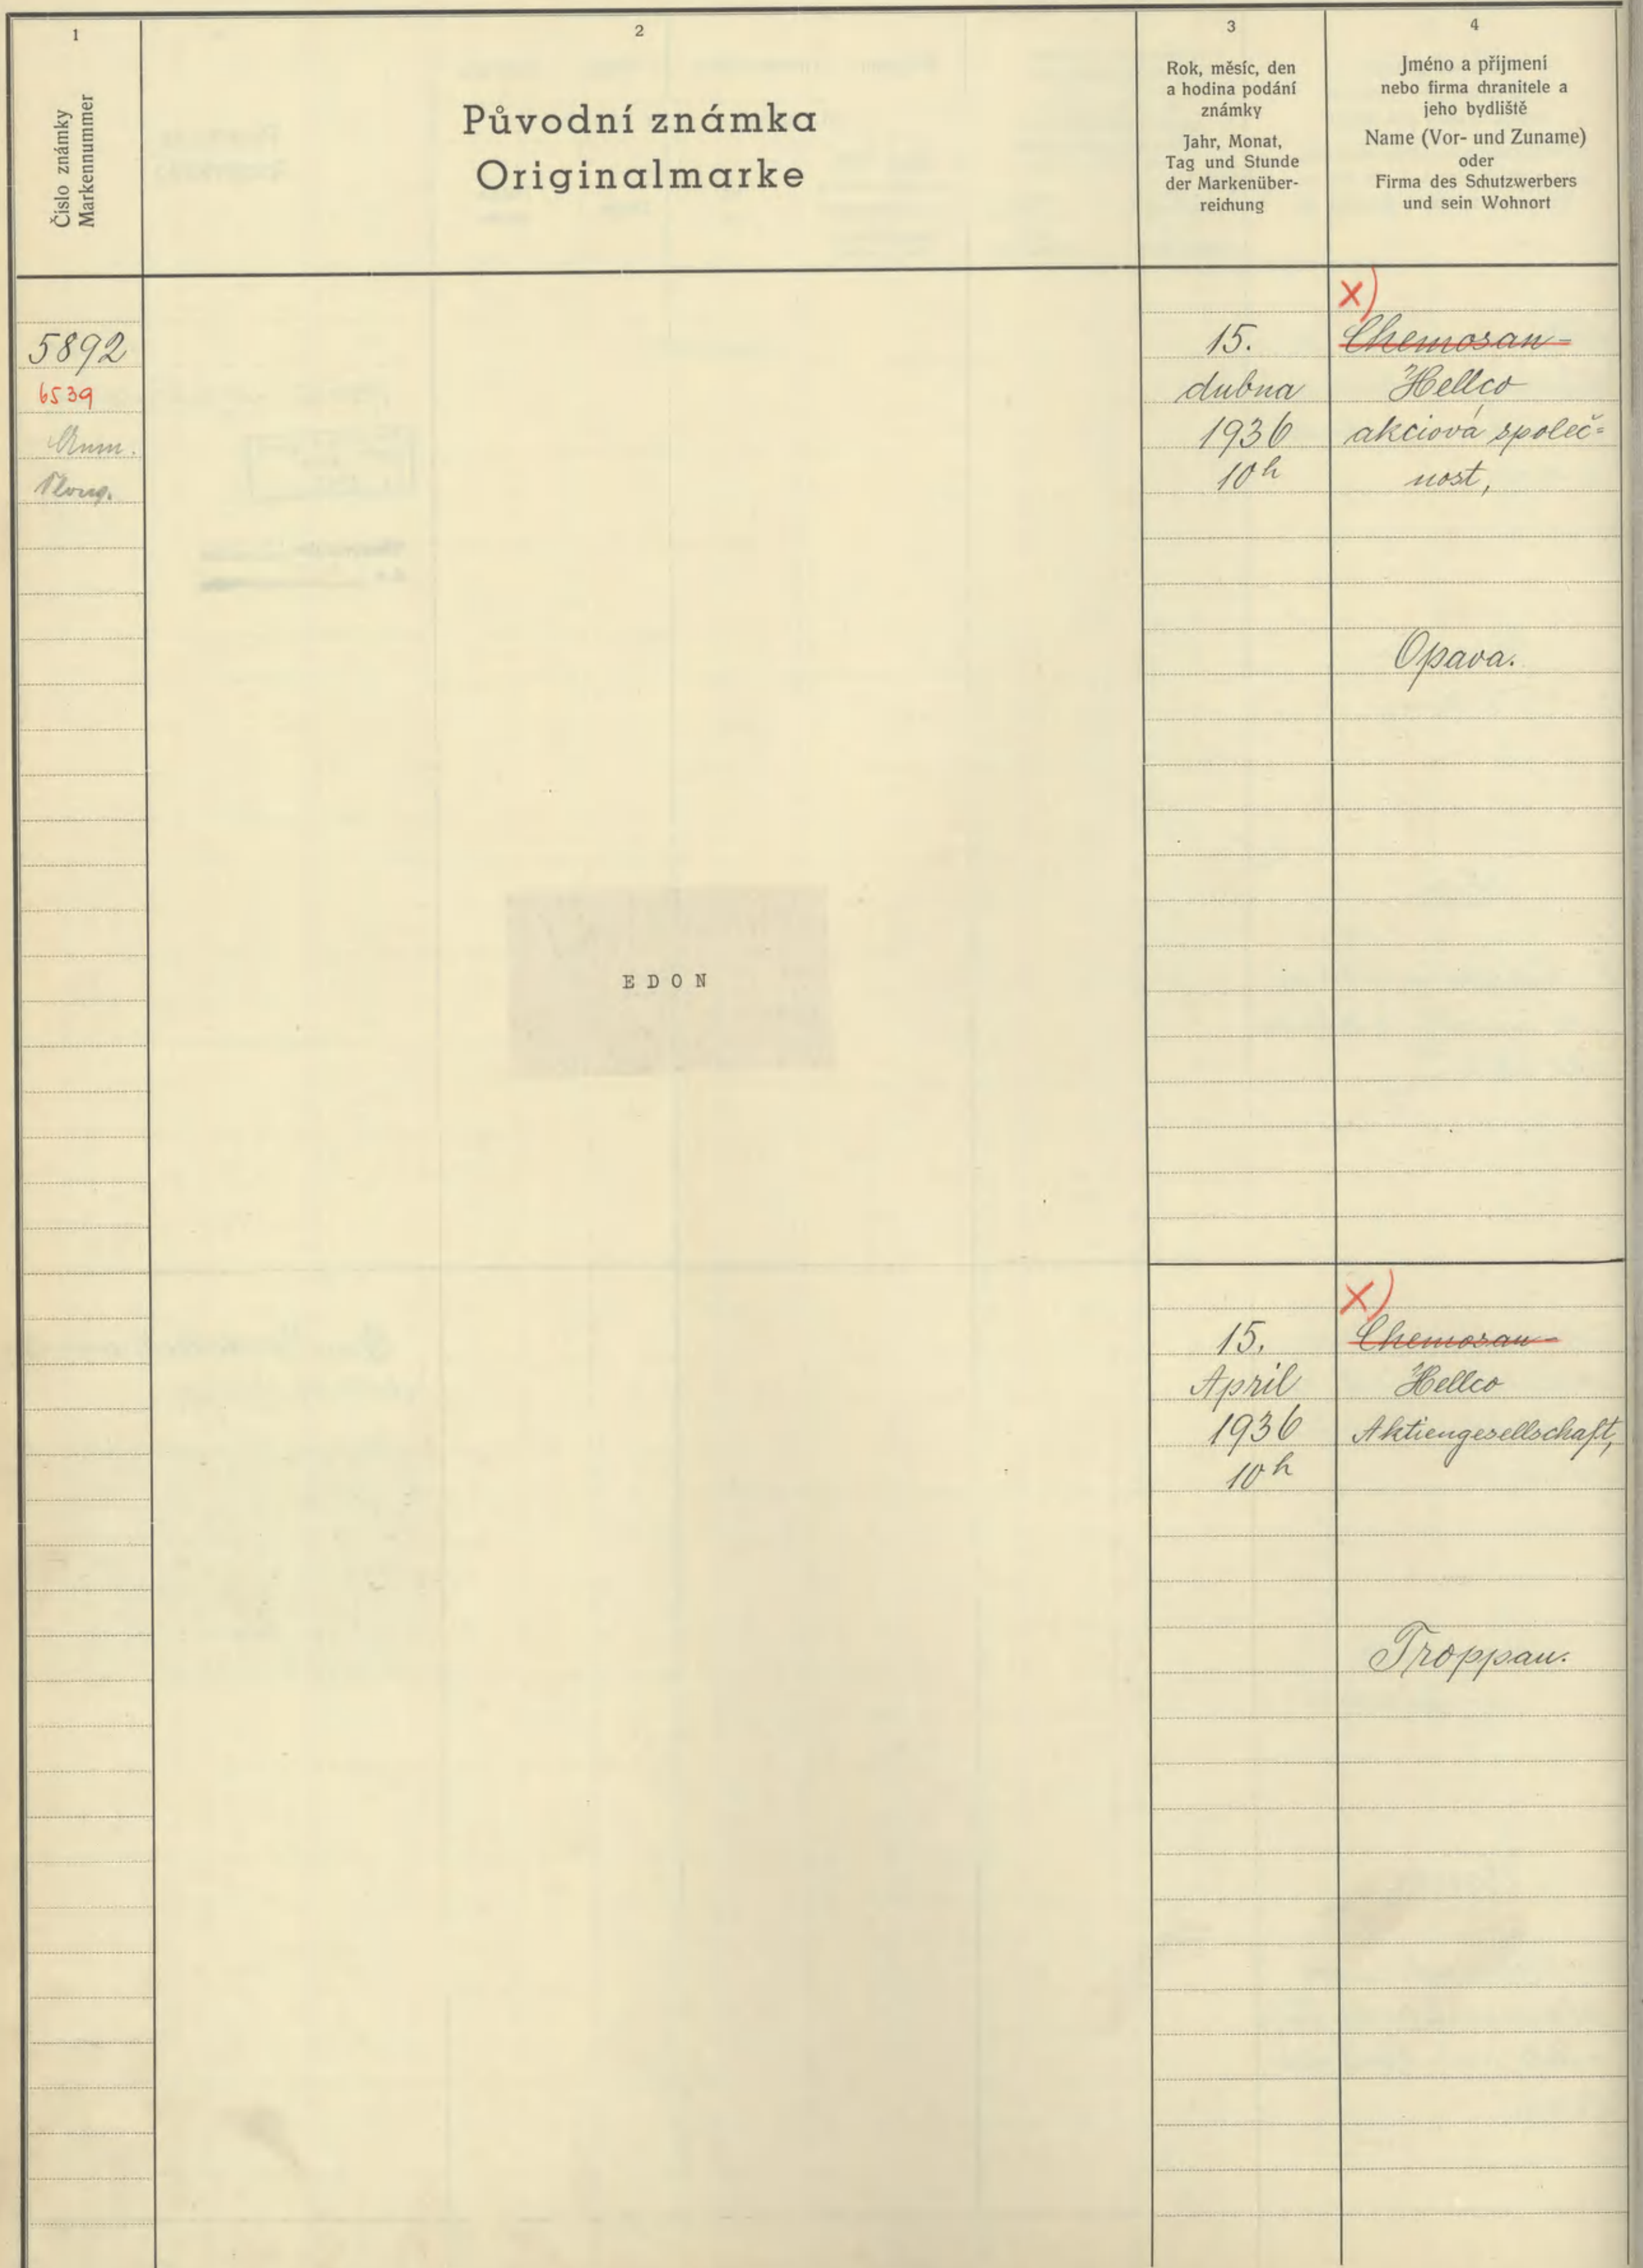 1
Číslo známky
Markennummer
2
Původní známka
Originalmarke
3
Rok, měsíc, den
a hodina podání
známky
Jahr, Monat,
Tag und Stunde
der Markenüber-
reichung
4
Jméno a přijmení
nebo firma chranitele a
jeho bydliště
Name (Vor- und Zuname)
oder
Firma des Schutzwerbers
und sein Wohnort
5892
6539
15.
dubna
1936
10h
x)
Chemosan-
Hellco
akciová společ=
nost,
Opava.
EDON
15.
April
1936
10h
x)
Chemosan-
Hellco
Aktiengesellschaft,
Troppau.